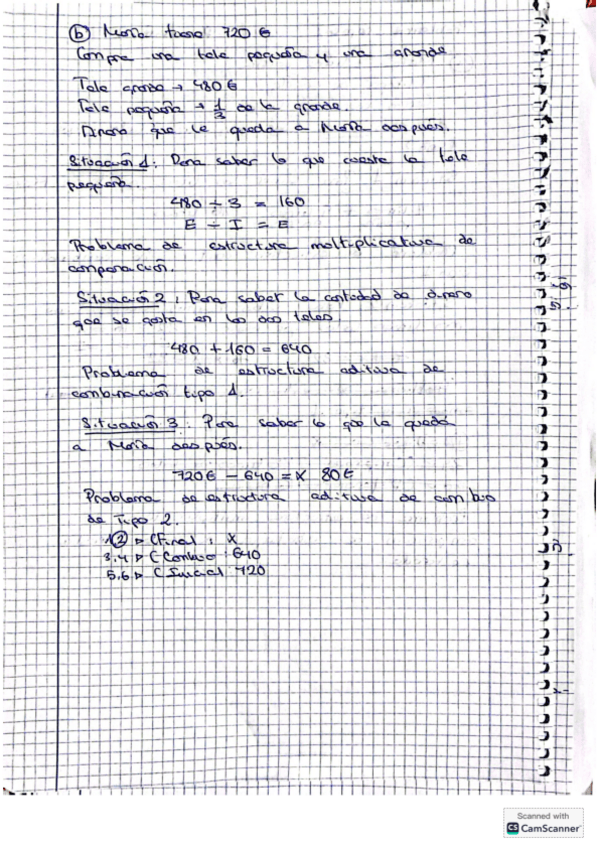 b) María tiene 720 €
Compra una tele pequeña y una grande
Tele grande → 480 €
Tele pequeña → 1/3 de la grande.
Dinero que le queda a María después.
Situación 1: Para saber lo que cuesta la tele
pequeña.
480 ÷ 3 = 160
E ÷ I = E
Problema de estructura multiplicativa de
comparación.
Situación 2: Para saber la cantidad de dinero
que se gasta en las dos teles.
480 + 160 = 640
Problema de estructura aditiva de
combinación tipo 1.
Situación 3: Para saber lo que le queda
a María después.
720 € - 640 = x 80 €
Problema de estructura aditiva de cambio
de Tipo 2.
1,2 ▷ C Final : x
3,4 ▷ C Cambio : 640
5,6 ▷ C Inicial 720
Scanned with
CS CamScanner